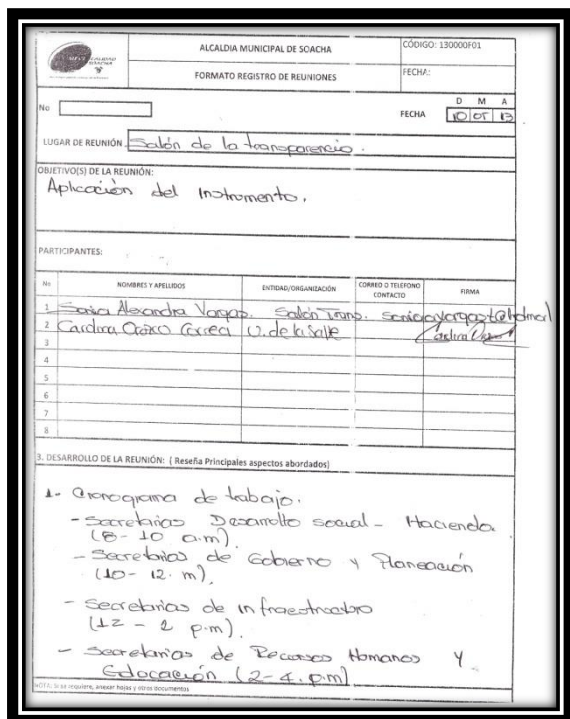 ALCALDIA MUNICIPAL DE SOACHA
CÓDIGO: 130000F01
FORMATO REGISTRO DE REUNIONES
FECHA:
No
FECHA
D M A
10 05 13
LUGAR DE REUNIÓN Salón de la transparencia.
OBJETIVO(S) DE LA REUNIÓN:
Aplicación del Instrumento.
PARTICIPANTES:
No NOMBRES Y APELLIDOS ENTIDAD/ORGANIZACIÓN CORREO O TELEFONO CONTACTO FIRMA
1 Sonia Alexandra Vargas. Salón Trans.
2 Carolina Orozco Correa U. de la Salle
3
4
5
6
7
8
3. DESARROLLO DE LA REUNIÓN: ( Reseña Principales aspectos abordados)
1- Cronograma de trabajo.
- Secretarias Desarrollo social - Hacienda
(8-10 a.m)
- Secretarias de Gobierno y Planeación
(10-12. m).
- Secretarias de infraestructura
(12 - 2 p.m).
- Secretarias de Recursos Humanos y
Educación (2-4. p.m)
NOTA: Si se requiere, anexar hojas y otros documentos